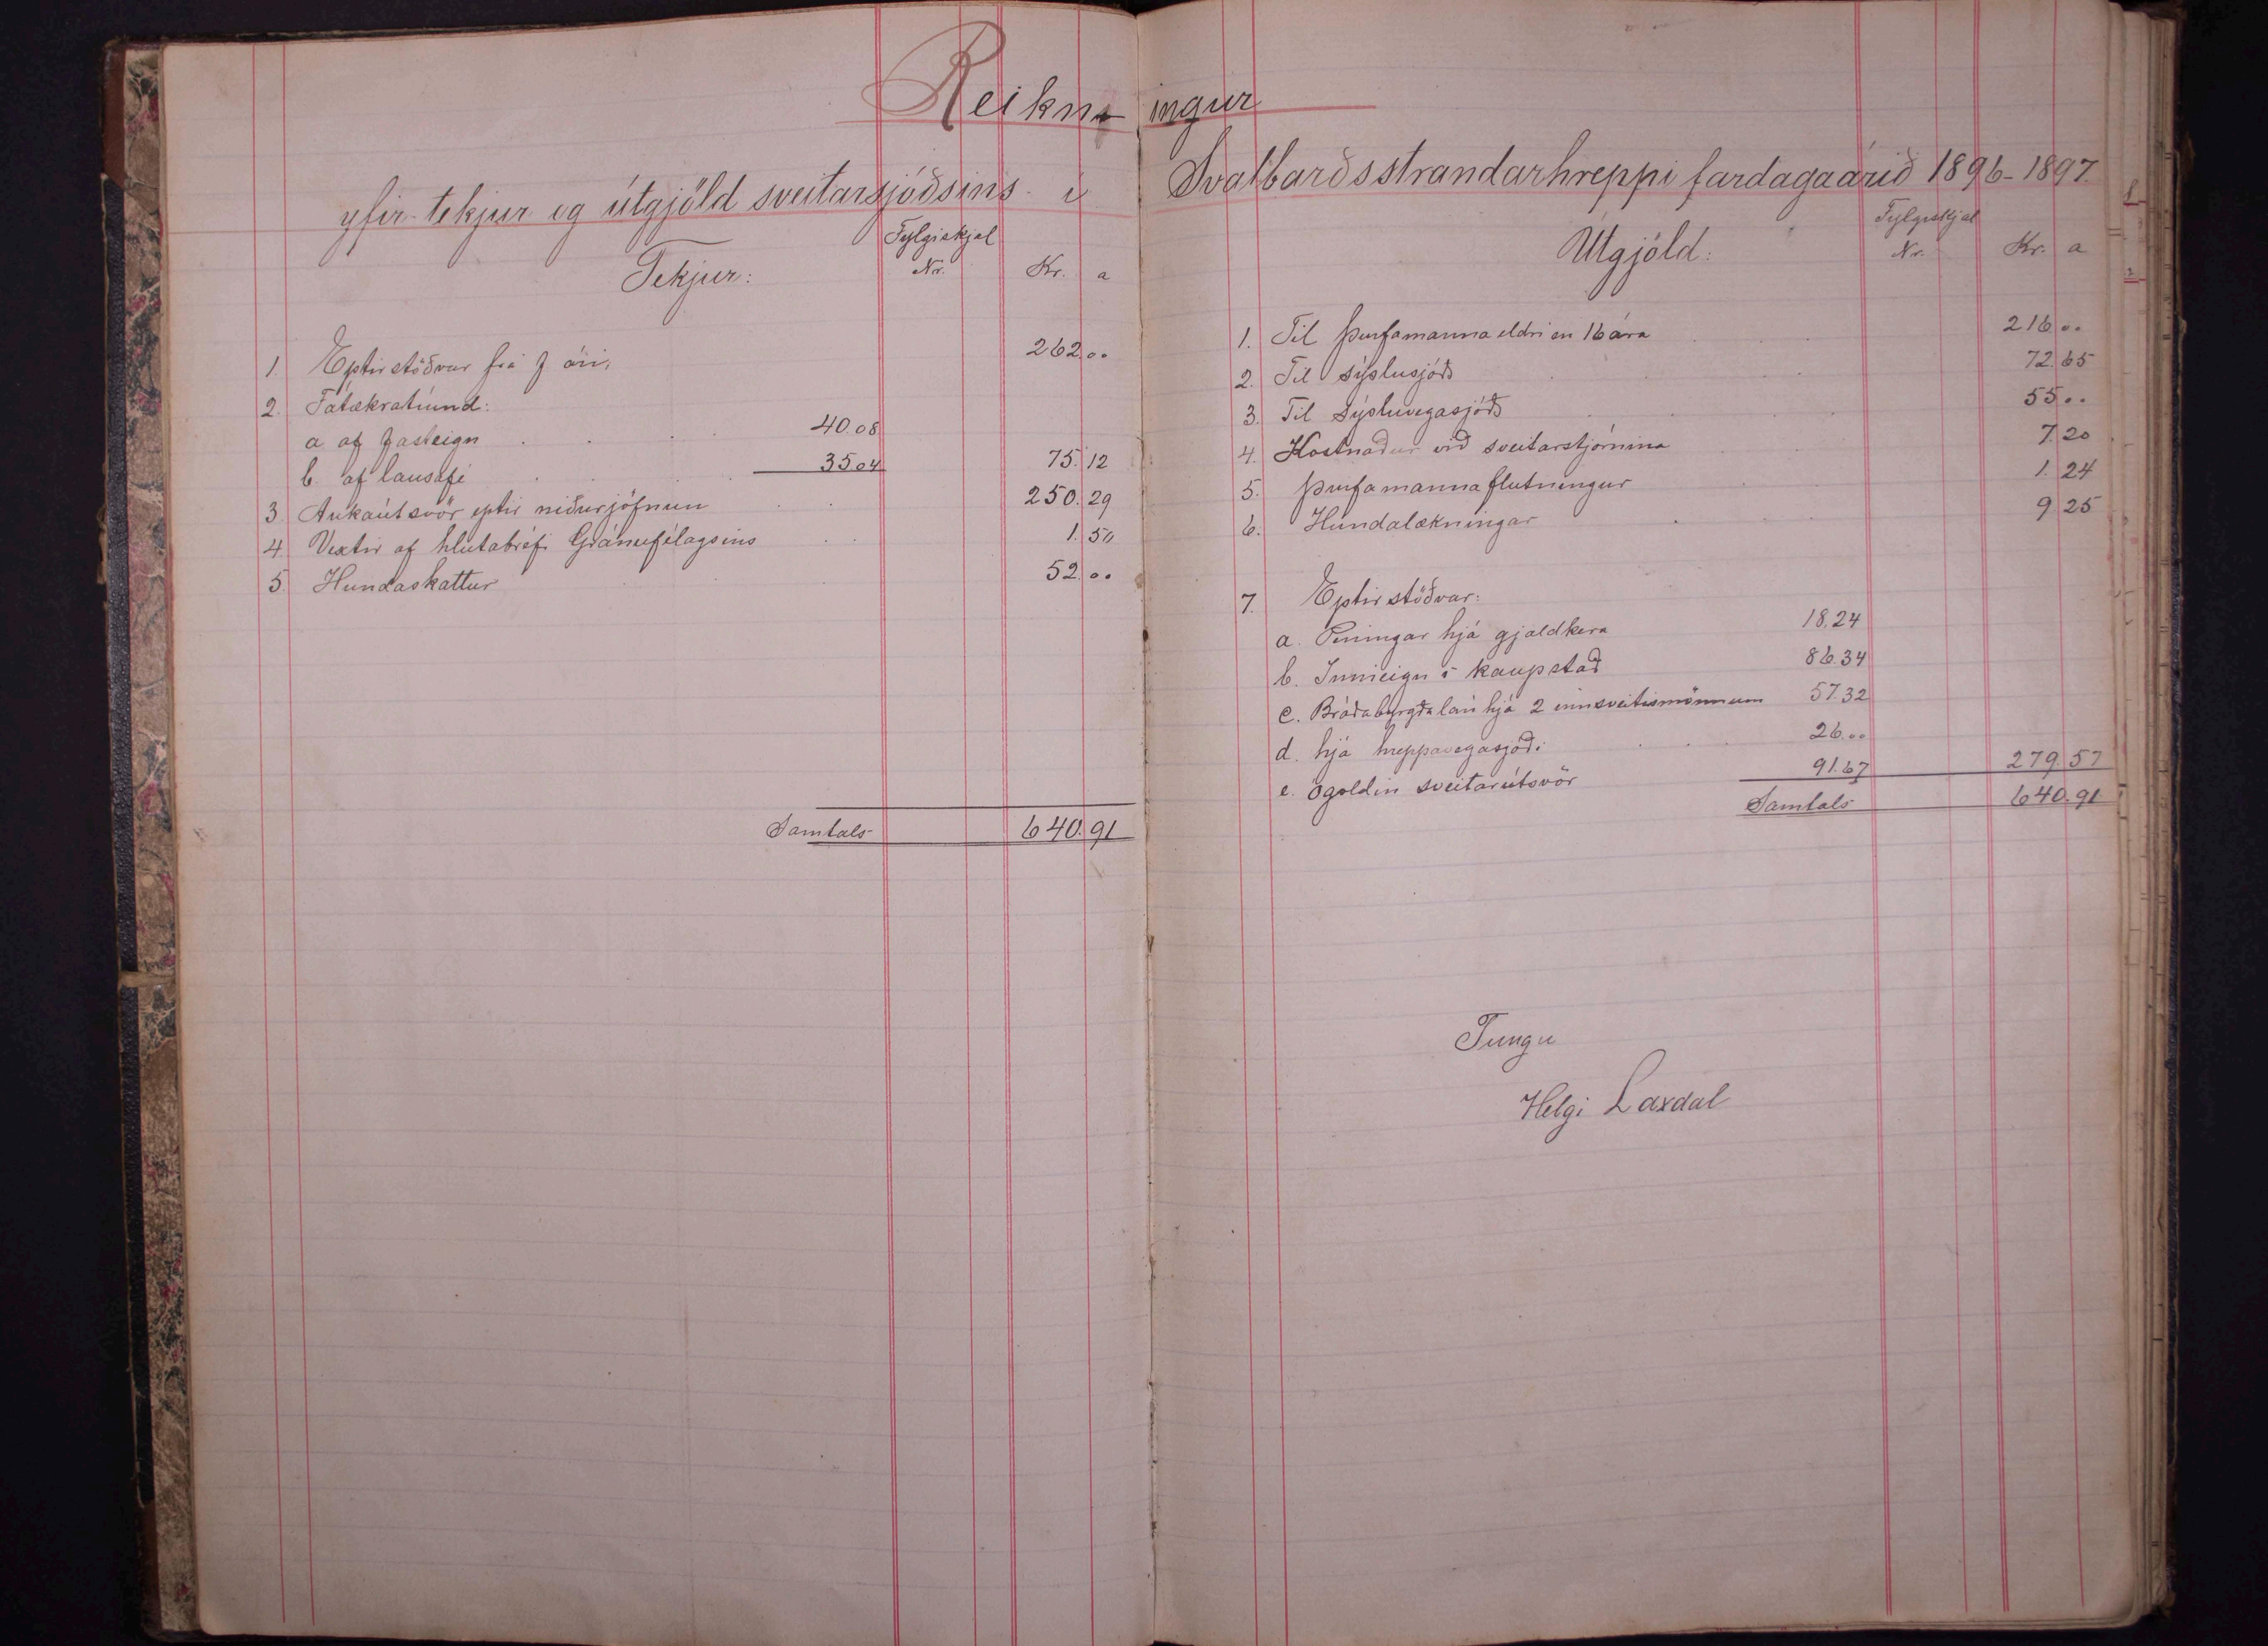 Reikn- ingur
yfir tekjur og útgjöld sveitarsjóðsins í Svalbarðsstrandarhreppi fardagaárið 1896-1897.
Tekjur: Fylgiskjal Nr. Kr. a
1. Eptirstöðvar frá f ári, 262 00
2. Fátækratíund:
a af fasteign 40.08
b. af lausafé 35 04 75. 12
3. Aukaútsvör eptir niðurjöfnun 250. 29
4 Vextir af hlutabréfi Gránufélagsins 1. 50
5. Hundaskattur 52 00
Samtals 640. 91
Útgjöld: Fylgiskjal Nr. Kr. a
1. Til þurfamanna eldri en 16 ára 216 00
2. Til sýslusjóðs 72. 65
3. Til sýsluvegasjóðs 55 00
4. Kostnaður við sveitarstjórnina 7. 20
5. Þurfamannaflutningur 1. 24
6. Hundalækningar 9 25
7. Eptirstöðvar:
a. Peningar hjá gjaldkera 18.24
b. Innieign í kaupstað 86.34
c. Bráðabyrgðalán hjá 2 innsveitismönnum 57.32
d. hjá hreppavegasjóði 26.00
e. Ógoldin sveitarútsvör 91.67 279. 57
Samtals 640. 91
Tungu
Helgi Laxdal